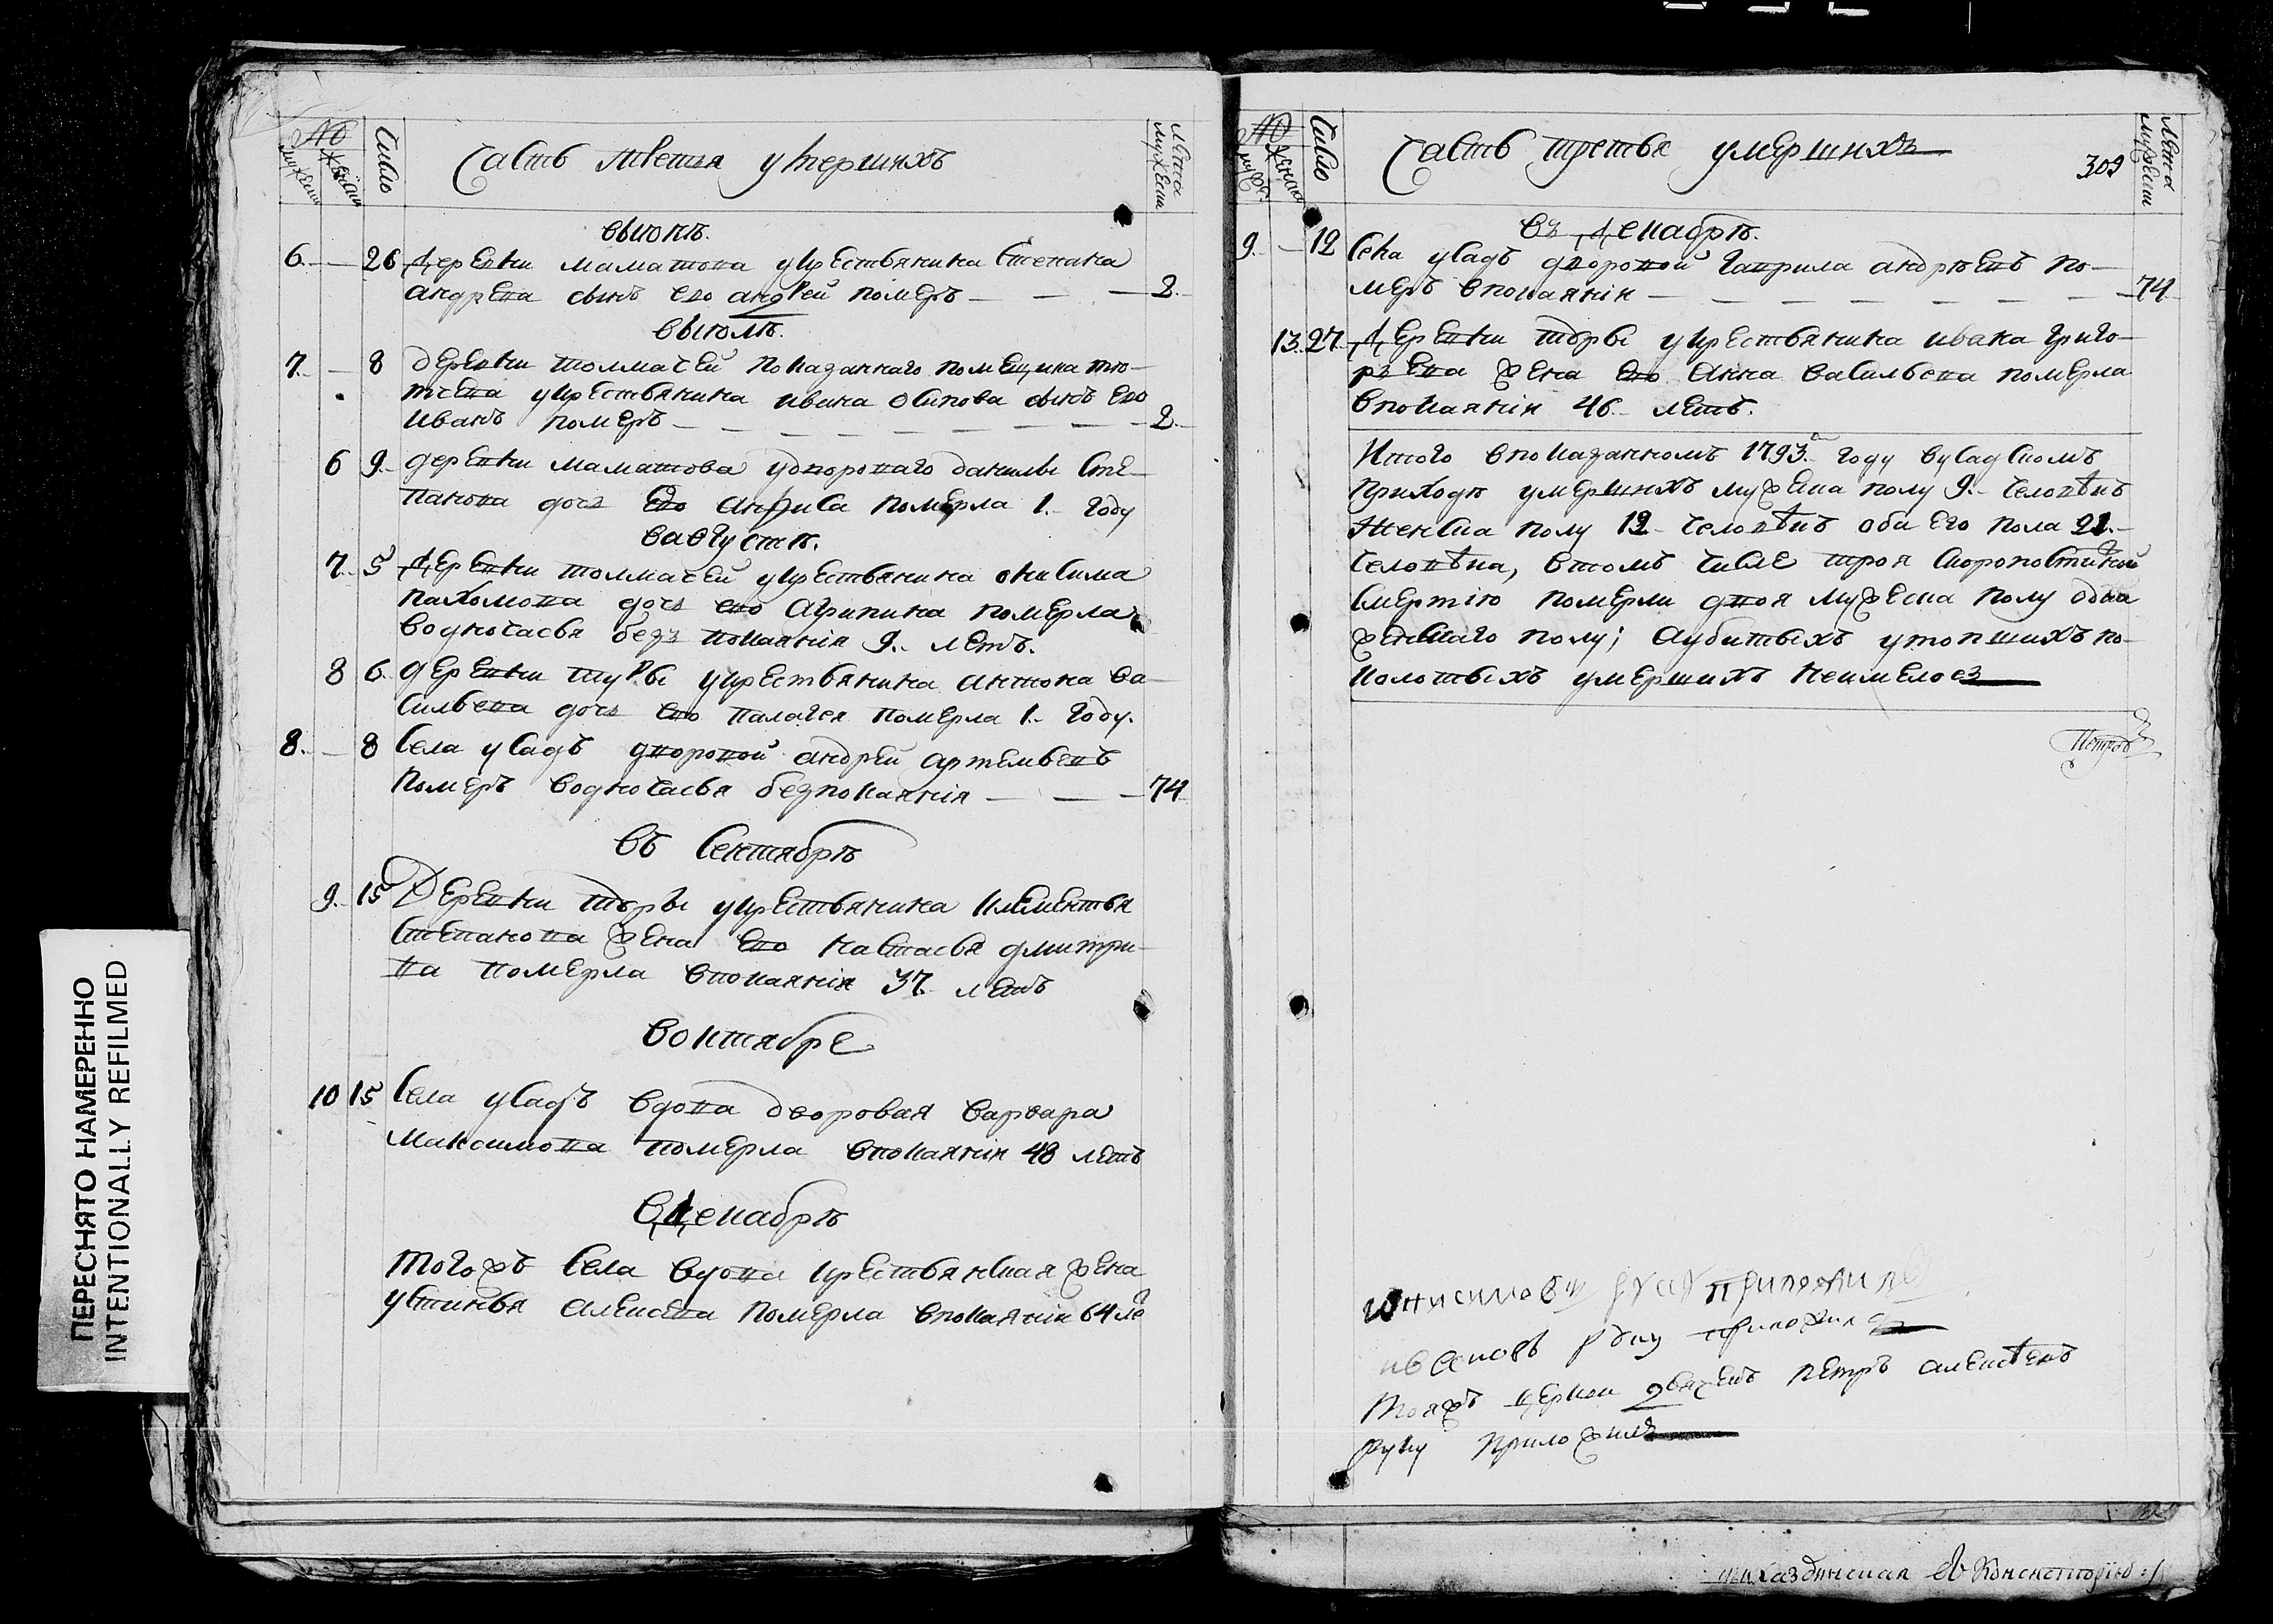 №
мужеск
женск
Число
Часть третья умершихъ
Лѣта
мужеск
въиюнѣ.
6. — 26 Деревни маматова укрестьянина Степана
андреева сынъ его андрей померъ — — — 2.
въиюлѣ.
7. — 8 деревни толмачей показаннаго помещика тю-
тчева укрестьянина ивана осипова сынъ его
иванъ померъ — — — — — — — — — 2.
6 9. деревни маматова удвороваго данилы сте-
панова дочь его анфиса померла 1. году
вавгустѣ.
7. 5 Деревни толмачей укрестьянина онисима
пахомова дочь его агрипина померла
водночасья безъ покаянія 9. летъ.
8 6. деревни туръы укрестьянина антона ва-
сильева дочь его палагея померла 1. году.
8. — 8 Села усадъ дворовой андрей артемьевъ
померъ водночасья безпокаянія — — — 74
въ Сентябрѣ
9. 15 Деревни търы укрестьянина клементья
Степанова жена его настасья дмитри-
ва померла впокаяніи 37. летъ
воктябре
10 15 Села усадъ вдова дворовая варвара
Максимова померла впокаяніи 48 летъ
вдекабрѣ
тогожъ Села вдова крестьянская жена
устинья алексева померла впокаяніи 64 ле
№
Число
Часть третья умершихъ
309
Лета
мужеск
въ декабрѣ.
9. — 12 Села усадъ дворовой гаврила андрѣевъ по-
меръ впокаяніи — — — — — — — 74
13. 27. Деревни търы укрестьянина ивана григо-
рьева жена его анна васильева померла
впокаяніи 46. летъ.
Итого впоказанномъ 1793. году вусадскомъ
приходѣ умершихъ мужеска полу 9. человѣкъ
женска полу 12 человѣкъ обаего пола 21.
человѣка, втомъ числе троя скоропостижной
смертію померли двоя мужеска полу одна
женскаго полу; аубитыхъ утопшихъ по-
колотыхъ умершихъ неимелось
Петровъ
ивановъ руку приложилъ
тояжъ церкви петръ алексѣевъ
руку приложилъ
ПЕРЕСНЯТО НАМЕРЕННО
INTENTIONALLY REFILMED